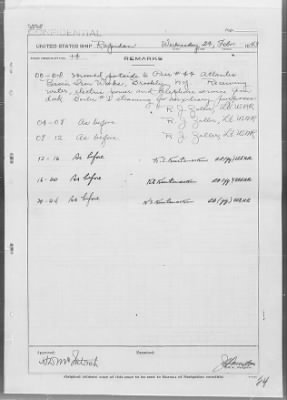 CONFIDENTIAL
UNITED STATES SHIP Wednesday 24, Febr, 1943
44
REMARKS
00-04 Moored portside to Pier #44 Atlantic
Basin Iron Works, Brooklyn, N.Y. Receiving
water, electric power and telephone service from
dock. Boiler #1 steaming for auxiliary purposes.
R. J. Zeller, Lt. USNR
04-08 As before
R. J. Zeller, Lt. USNR
08-12 As before
R. J. Zeller, Lt. USNR
12-16 As before USNR
16-20 As before USNR
20-24 As before USNR
Approved: Examined:
Original (ribbon) copy of this page to be sent to Bureau of Navigation monthly.
24